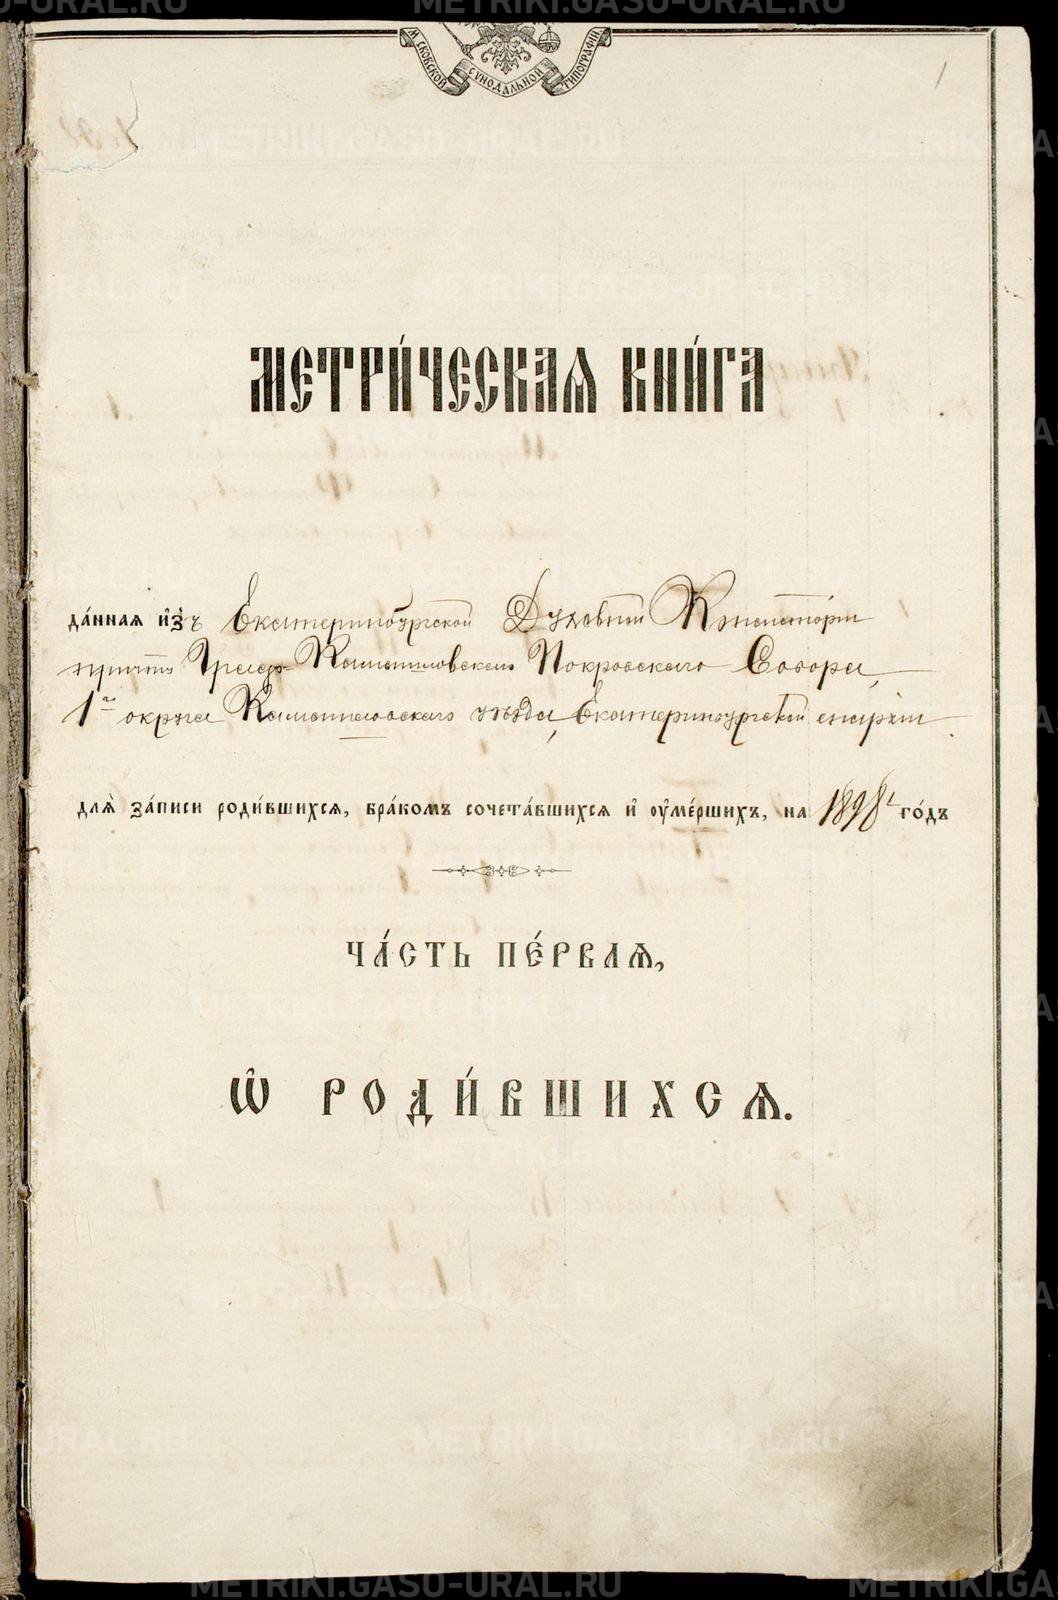 МОСКОВСКОЙ СѴНОДАЛЬНОЙ ТИПОГРАФІИ
1
МЕТРИ́ЧЕСКАѦ КНИ́ГА
да́ннаѧ и҆з̾ Екатеринбургской Духовной Консисторіи
причту Градо-Камышловскаго Покровскаго Собора,
1го округа Камышловскаго уѣзда, Екатеринбургской епархіи
длѧ̀ за́писи роди́вшихсѧ, бра́комъ сочета́вшихсѧ и҆ оу҆ме́ршихъ, на 1898й го́дъ
ЧА́СТЬ ПЕ́РВАѦ,
Ѽ РОДИ́ВШИХСѦ.